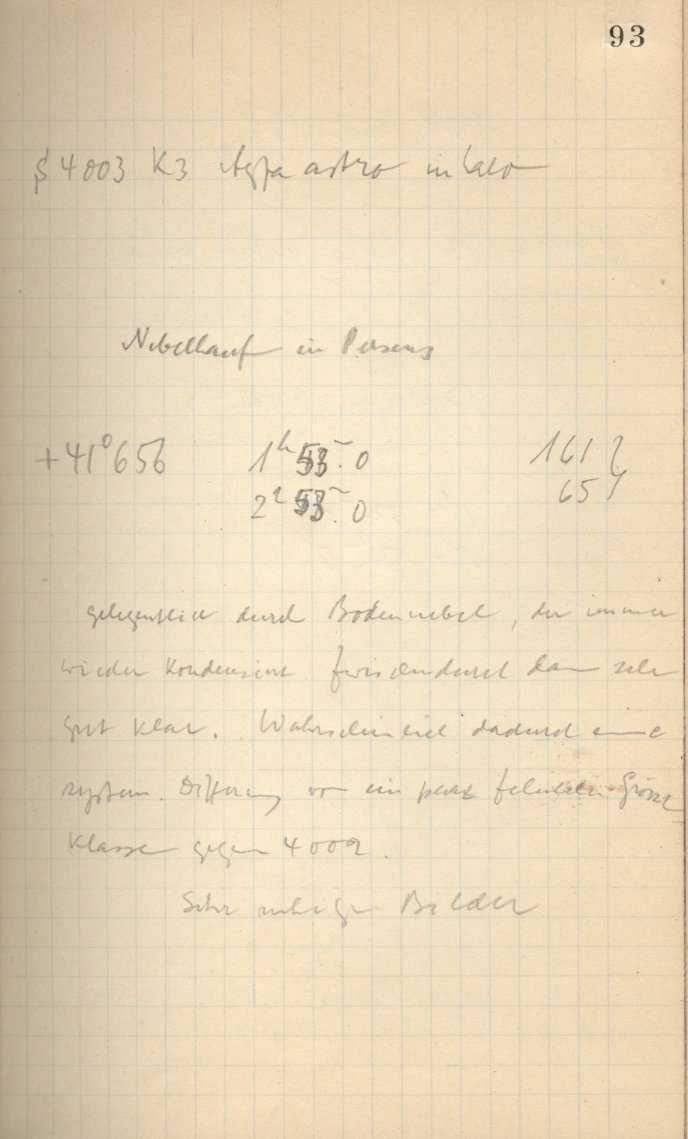 93
4003 K3 Agfa astro
Nebelhauf in Perseus
+41°656 1h 53.0 161
2h 53.0 65
gelegentlich durch Bodennebel, der immer
wieder kondensiert. Zwischendurch dann sehr
gut klar. Wahrscheinlich dadurch eine
system. Differenz von ein paar Größen
klasse gegen 4002.
Sehr ruhige Bilder